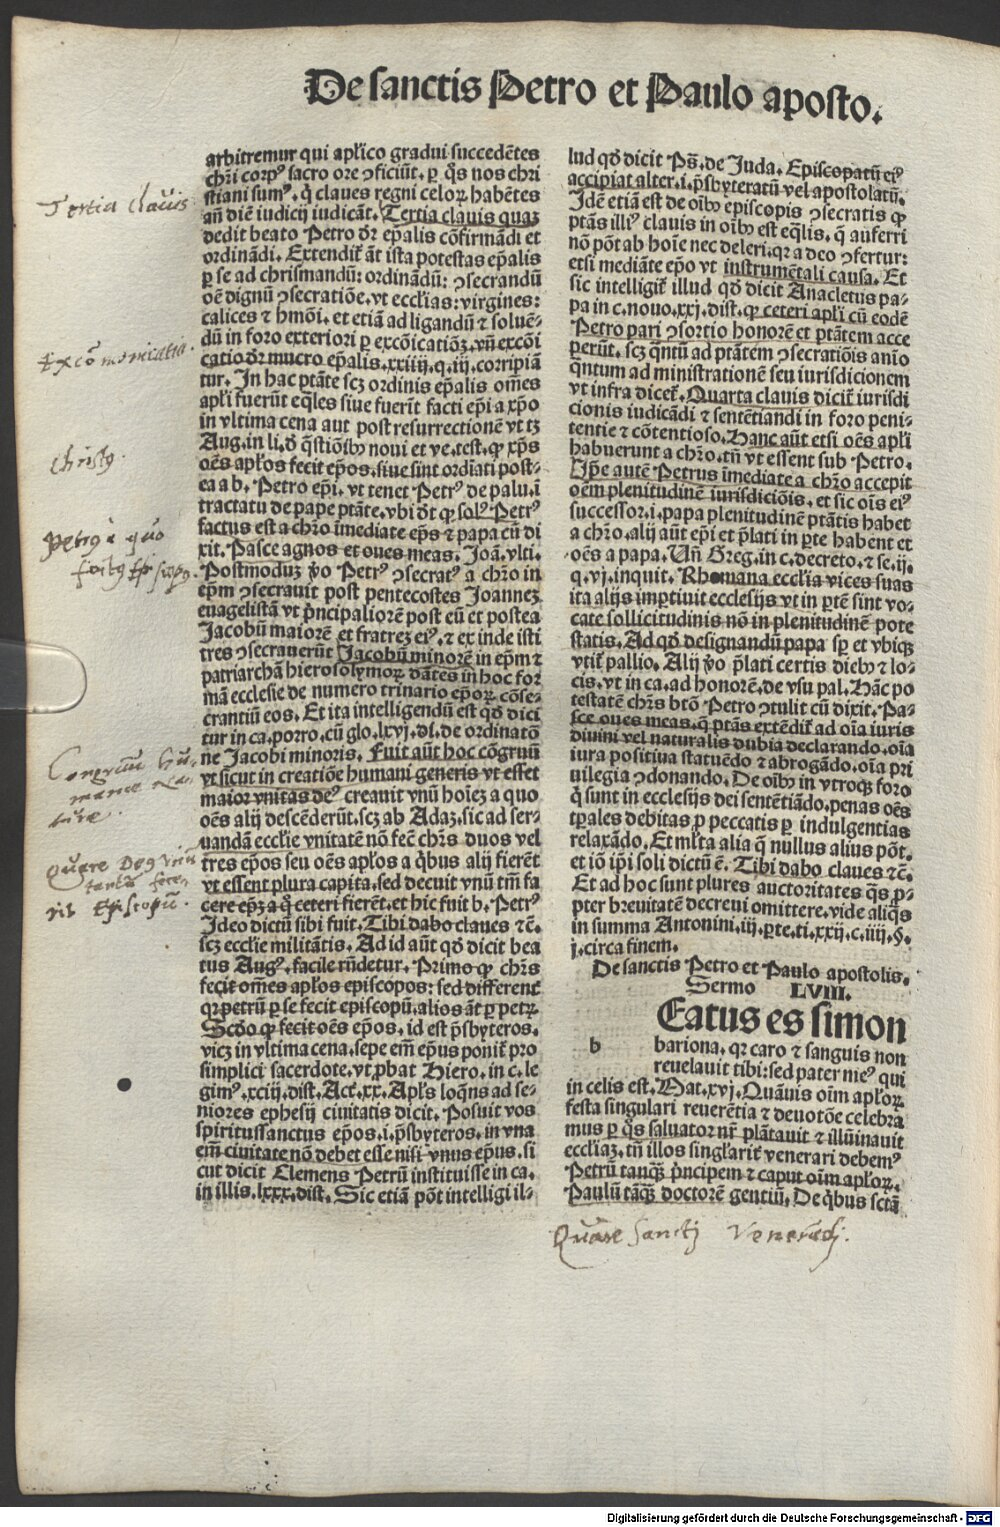 De sanctis Petro et Paulo aposto.
arbitremur qui apl̃ico gradui succedẽtes
chr̃i corpꝰ sacro ore ꝯficiũt. ꝑ q̃s nos chri
stiani sumꝰ. q̃ claues regni celoꝝ habẽtes
añ diẽ iudicij iudicãt. Tertia clauis quaꝫ
dedit beato Petro dr̃ ep̃alis cõfirmãdi et
ordinãdi. Extendit᷑ ãt ista potestas ep̃alis
ꝑ se ad chrismandũ: ordinãdũ: ꝯsecrandũ
oẽ dignũ ꝯsecratiõe. vt eccl̃ias: virgines:
calices ⁊ hmõi. et etiã ad ligandũ ⁊ soluẽ-
dũ in foro exteriori ꝑ excõicatiõꝫ. vñ excõi
catio dr̃ mucro ep̃alis. xxiiij. q. iij. corripiã
tur. In hac ptãte scꝫ ordinis ep̃alis om̃es
apl̃i fuerũt eq̃les siue fuerĩt facti ep̃i a xp̃o
in vltima cena aut post resurrectionẽ vt tꝫ
Aug. in li. ð q̃stiõibꝰ noui et ve. test. ꝙ xp̃s
oẽs apl̃os fecit ep̃os. siue sint ordĩati post-
ea a b. Petro ep̃i. vt tenet Petrꝰ de palu. ĩ
tractatu de pape ptãte. vbi ðt ꝙ solꝰ Petrꝰ
factus est a chr̃o ĩmediate ep̃s ⁊ papa cũ di
xit. Pasce agnos et oues meas. Joã. vlti.
Postmoduꝫ ṽo Petrꝰ ꝯsecratꝰ a chr̃o in
ep̃m ꝯsecrauit post pentecostes Joanneꝫ
euagelistã vt p̃ncipaliorẽ post eũ et postea
Jacobũ maiorẽ et fratreꝫ eiꝰ. ⁊ ex inde isti
tres ꝯsecrauerũt Jacobũ minorẽ in ep̃m ⁊
patriarchã hierosolymoꝝ dãtes in hoc for
mã ecclesie de numero trinario ep̃oꝝ cõse-
crantiũ eos. Et ita intelligendũ est qð dici
tur in ca. porro. cũ glo. lxvj. di. de ordinatõ
ne Jacobi minoris. Fuit aũt hoc cõgruũ
vt sicut in creatiõe humani generis vt esset
maior vnitas deꝰ creauit vnũ hoĩeꝫ a quo
oẽs alij descẽderũt. scꝫ ab Adaꝫ. sic ad ser-
uandã eccl̃ie vnitatẽ nõ fec̃ chr̃s duos vel
tres ep̃os seu oẽs apl̃os a q̃bus alij fierẽt
vt essent plura capita. sed decuit vnũ tm̃ fa
cere ep̃ꝫ a q̃ ceteri fierẽt. et hic fuit b. Petrꝰ
Ideo dictũ sibi fuit. Tibi dabo claues ⁊c̃.
scꝫ eccl̃ie militãtis. Ad id aũt qð dicit bea
tus Augꝰ. facile rñdetur. Primo ꝙ chr̃s
fecit om̃es apl̃os episcopos: sed different᷑
qꝛ petrũ ꝑ se fecit episcopũ. alios ãt ꝑ petꝝ
Scð̃o ꝙ fecit oẽs ep̃os. id est p̃sbyteros.
vicꝫ in vltima cena. sepe em̃ ep̃us ponit᷑ pro
simplici sacerdote. vt ꝓbat Hiero. in c. le
gimꝰ. xciij. dist. Act̃. xx. Apl̃s loq̃ns ad se-
niores ephesij ciuitatis dicit. Posuit vos
spiritussanctus ep̃os. i. p̃sbyteros. in vna
em̃ ciuitate nõ debet esse nisi vnus ep̃us. si
cut dicit Clemens Petrũ instituisse in ca.
in illis. lxxx. dist. Sic etiã põt intelligi il-
lud qð dicit Ps̃. de Juda. Episcopatũ eiꝰ
accipiat alter. i. p̃sbyteratũ vel apostolatũ.
Idẽ etiã est de oĩbꝰ episcopis ꝯsecratis ꝙ
ptãs illiꝰ clauis in oĩbꝰ est eq̃lis. q̃ auferri
nõ põt ab hoĩe nec deleri. qꝛ a deo ꝯfertur:
etsi mediãte ep̃o vt instrumẽtali causa. Et
sic intelligit᷑ illud qð dicit Anacletus pa-
pa in c. nouo. xxj. dist. ꝙ ceteri apl̃i cũ eodẽ
Petro pari ꝯsortio honorẽ et ptãtem acce
perũt. scꝫ q̃ntũ ad ptãtem ꝯsecratiõis añio
q̃ntum ad ministrationẽ seu iurisdicionem
vt infra dicet᷑. Quarta clauis dicit᷑ iurisdi
cionis iudicãdi ⁊ sentẽtiandi in foro peni-
tentie ⁊ cõtentioso. Hanc aũt etsi oẽs apl̃i
habuerunt a chr̃o. tñ vt essent sub Petro.
Ip̃e autẽ Petrus ĩmediate a chr̃o accepit
oẽm plenitudinẽ iurisdiciõis. et sic oĩs eiꝰ
successor. i. papa plenitudinẽ ptãtis habet
a chr̃o. alij aũt ep̃i et p̃lati in ꝑte habent et
oẽs a papa. Uñ Greg. in c. decreto. 2. se. ij.
q. vj. inquit. Rhomana eccl̃ia vices suas
ita alijs imꝑtiuit ecclesijs vt in ꝑtẽ sint vo-
cate sollicitudinis nõ in plenitudinẽ pote
statis. Ad qð designandũ papa sꝑ et vbiqꝫ
vtit᷑ pallio. Alij ṽo p̃lati certis diebꝰ ⁊ lo-
cis. vt in ca. ad honorẽ. de vsu pal. Hãc po
testatẽ chr̃s btõ Petro ꝯtulit cũ dixit. Pa-
sce oues meas. q̃ ptãs extẽdit᷑ ad oĩa iuris
diuini vel naturalis dubia declarando. oĩa
iura positiua statuẽdo ⁊ abrogãdo. oĩa pri
uilegia ꝯdonando. De oĩbꝰ in vtroqꝫ foro
q̃ sunt in ecclesijs dei sentẽtiãdo. penas oẽs
tꝑales debitas ꝑ peccatis ꝑ indulgentias
relaxãdo. Et ml̃ta alia q̃ nullus alius põt.
et iõ ip̃i soli dictũ ẽ. Tibi dabo claues ⁊c̃.
Et ad hoc sunt plures auctoritates q̃s ꝓ-
pter breuitatẽ decreui omittere. vide aliq̃s
in summa Antonini. iij. ꝑte. ti. xxij. c. iiij. §.
j. circa finem.
De sanctis Petro et Paulo apostolis.
Sermo LVIII.
b Eatus es simon
bariona. qꝛ caro ⁊ sanguis non
reuelauit tibi: sed pater meꝰ qui
in celis est. Mat. xvj. Quãuis oĩm apl̃oꝝ
festa singulari reuerẽtia ⁊ deuotõe celebra
mus ꝑ q̃s saluator nr̃ plãtauit ⁊ illũinauit
eccl̃iaꝫ. tñ illos singl̃arit᷑ venerari debemꝰ
Petrũ tanqꝫ p̃ncipem ⁊ caput oĩm apl̃oꝝ.
Paulũ tãqꝫ doctorẽ gentiũ. De q̃bus sctã
Tertia clauis
Excõmonicatio.
Christꝰ.
Petrꝰ à quo
factꝰ Episcopꝰ.
Congruũ hu-
manae na-
turae.
Quare Deꝰ vnũ
tantũ fece-
rit Episcopũ.
Quare Sancti Venerãdi.
Digitalisierung gefördert durch die Deutsche Forschungsgemeinschaft - DFG